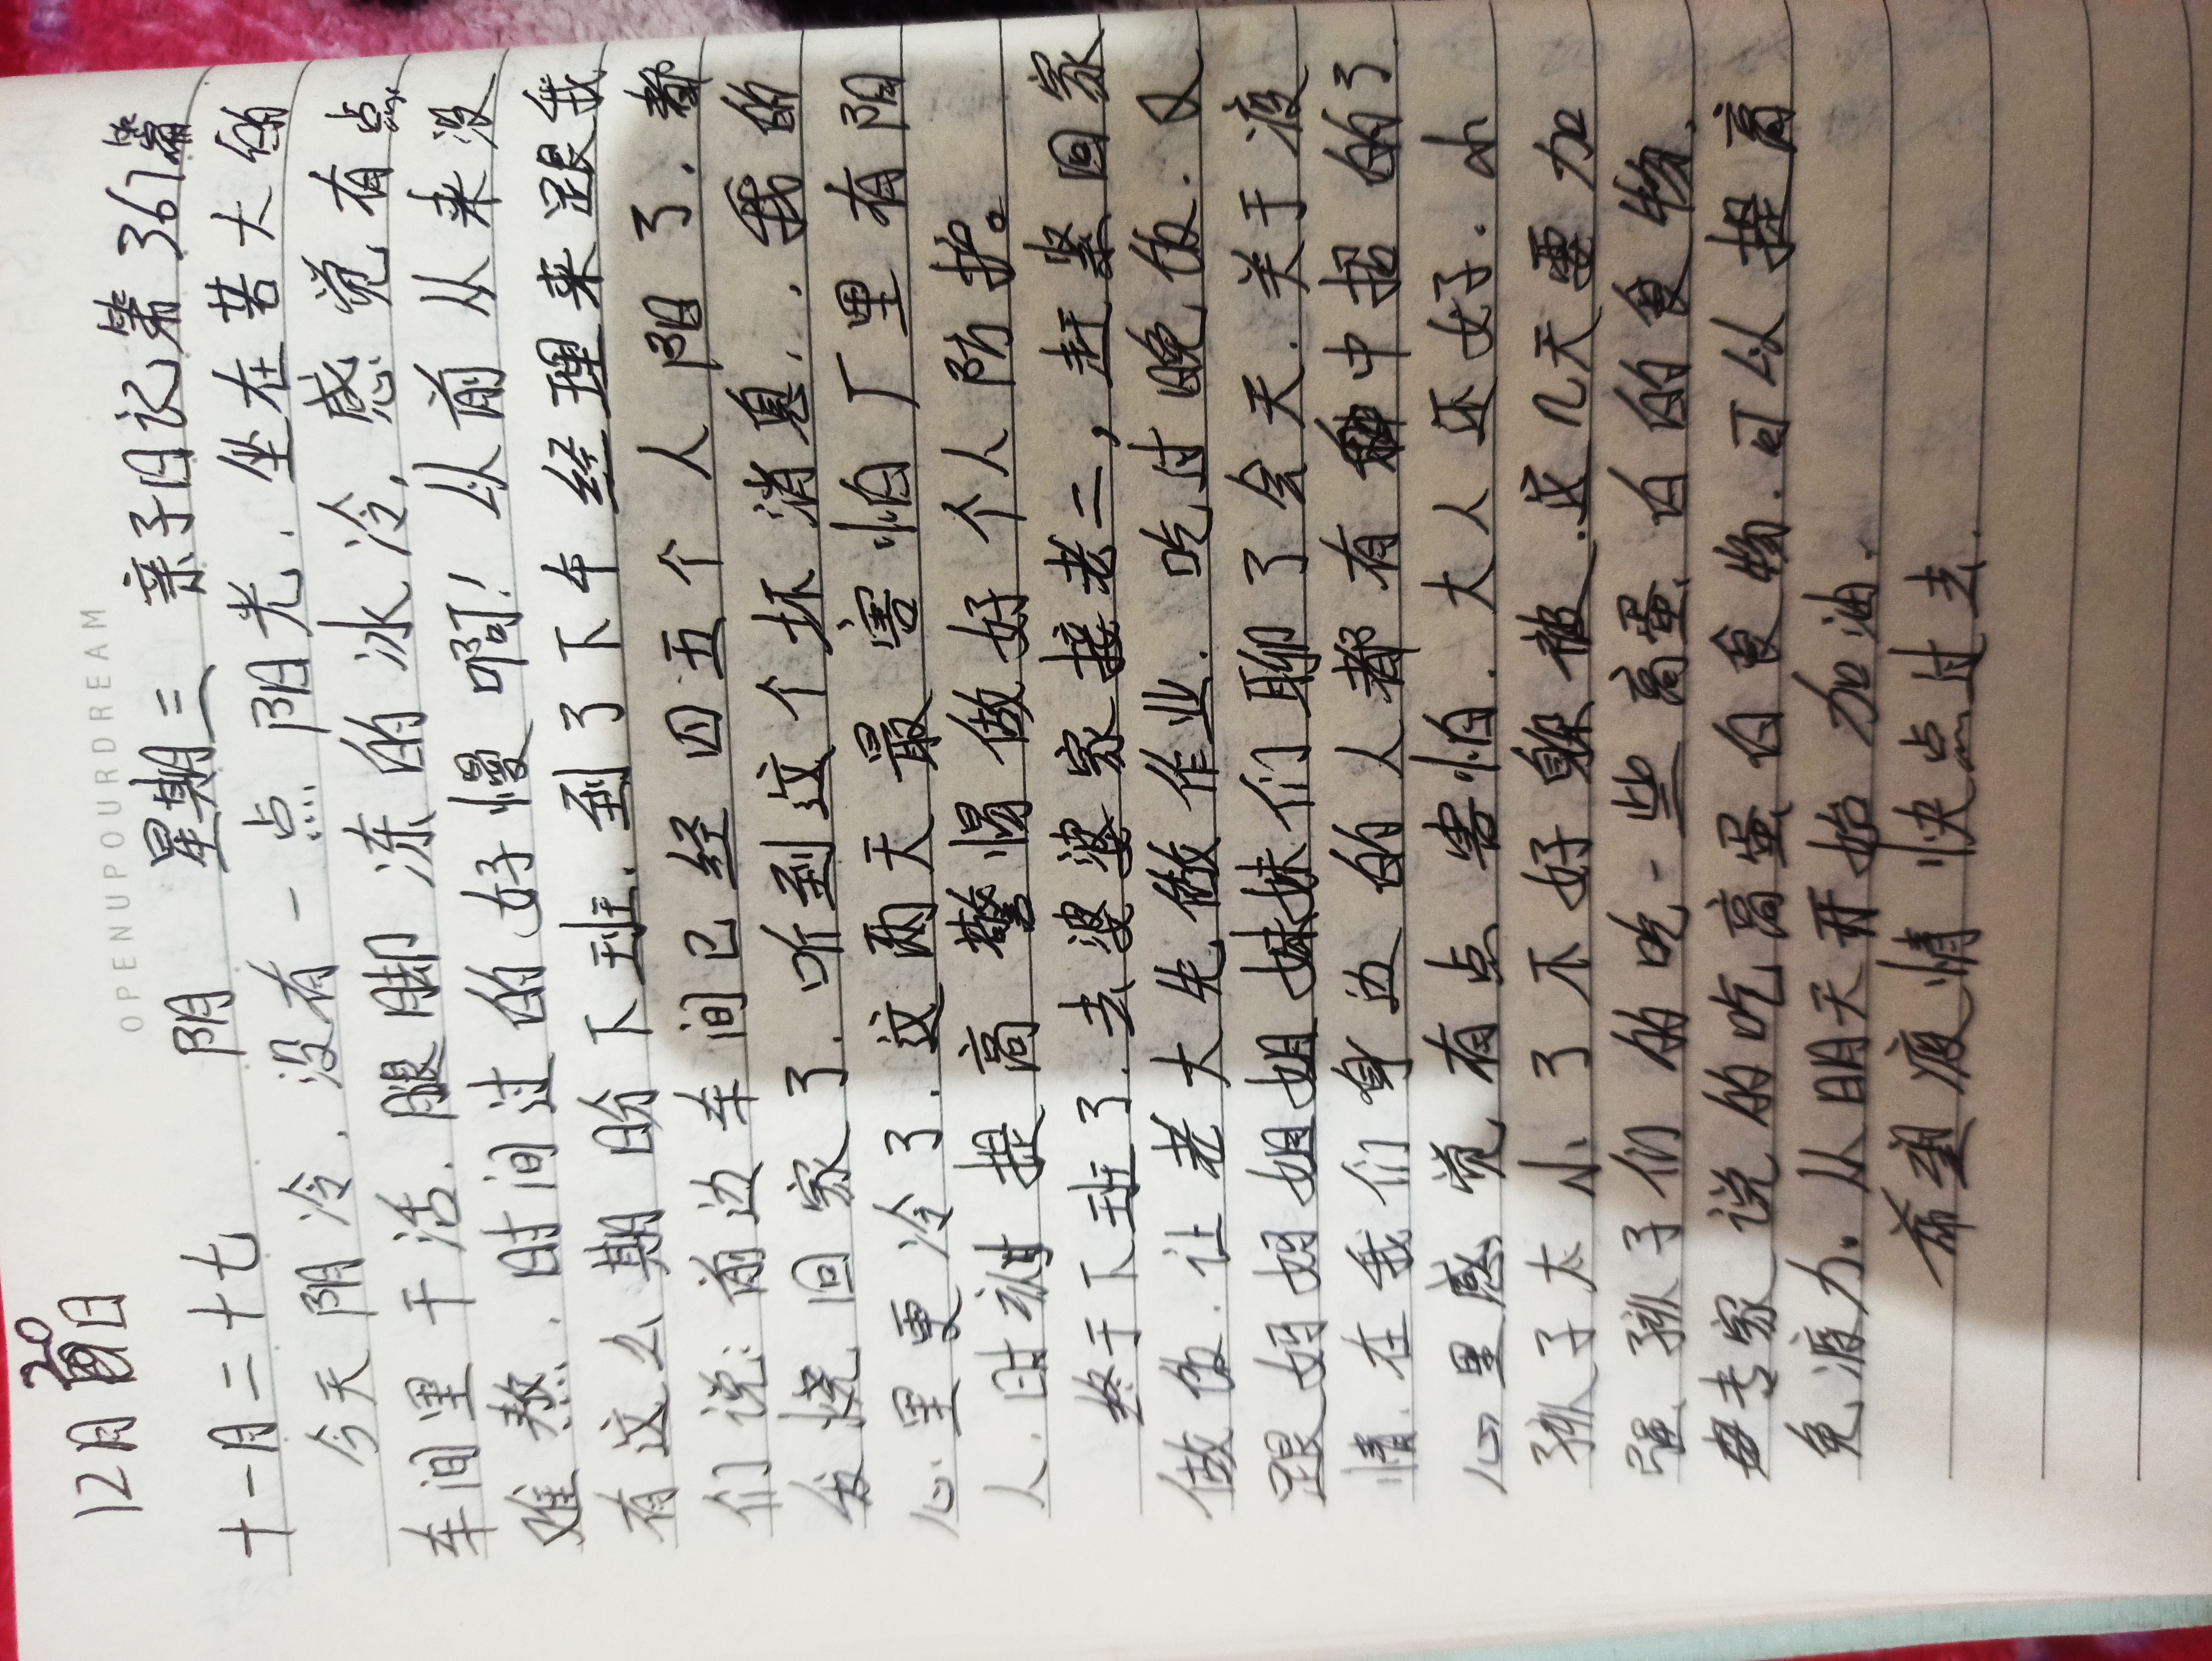 12月20日
OPENUPOURDREAM
十一月二十七 阴 星期三 亲子日记第361篇
今天阴冷.没有一点阳光.坐在若大的
车间里干活.腿脚冻的冰冷,感觉有点
难熬.时间过的好慢啊!从前从来没
有这么期盼下班.到了下午经理来跟我
们说:前边车间已经四五个人阳了.都
发烧回家了.听到这个坏消息..我的
心里更冷了.这两天最害怕厂里有阳
人.时刻提高警惕做好个人防护。
终于下班了.去婆婆家接老二,赶紧回家
做饭.让老大先做作业.吃过晚饭.又
跟妈妈姐姐妹妹们聊了会天.关于疫
情.在我们身边的人都有中招的了.
心里感觉有点害怕.大人还好.小
孩子太小了不好躲被.这几天要加
强孩子们的吃一些高蛋白的食物.
专家说的吃高蛋白食物.可以提高
免疫力.从明天开始加油.
希望疫情快点过去.